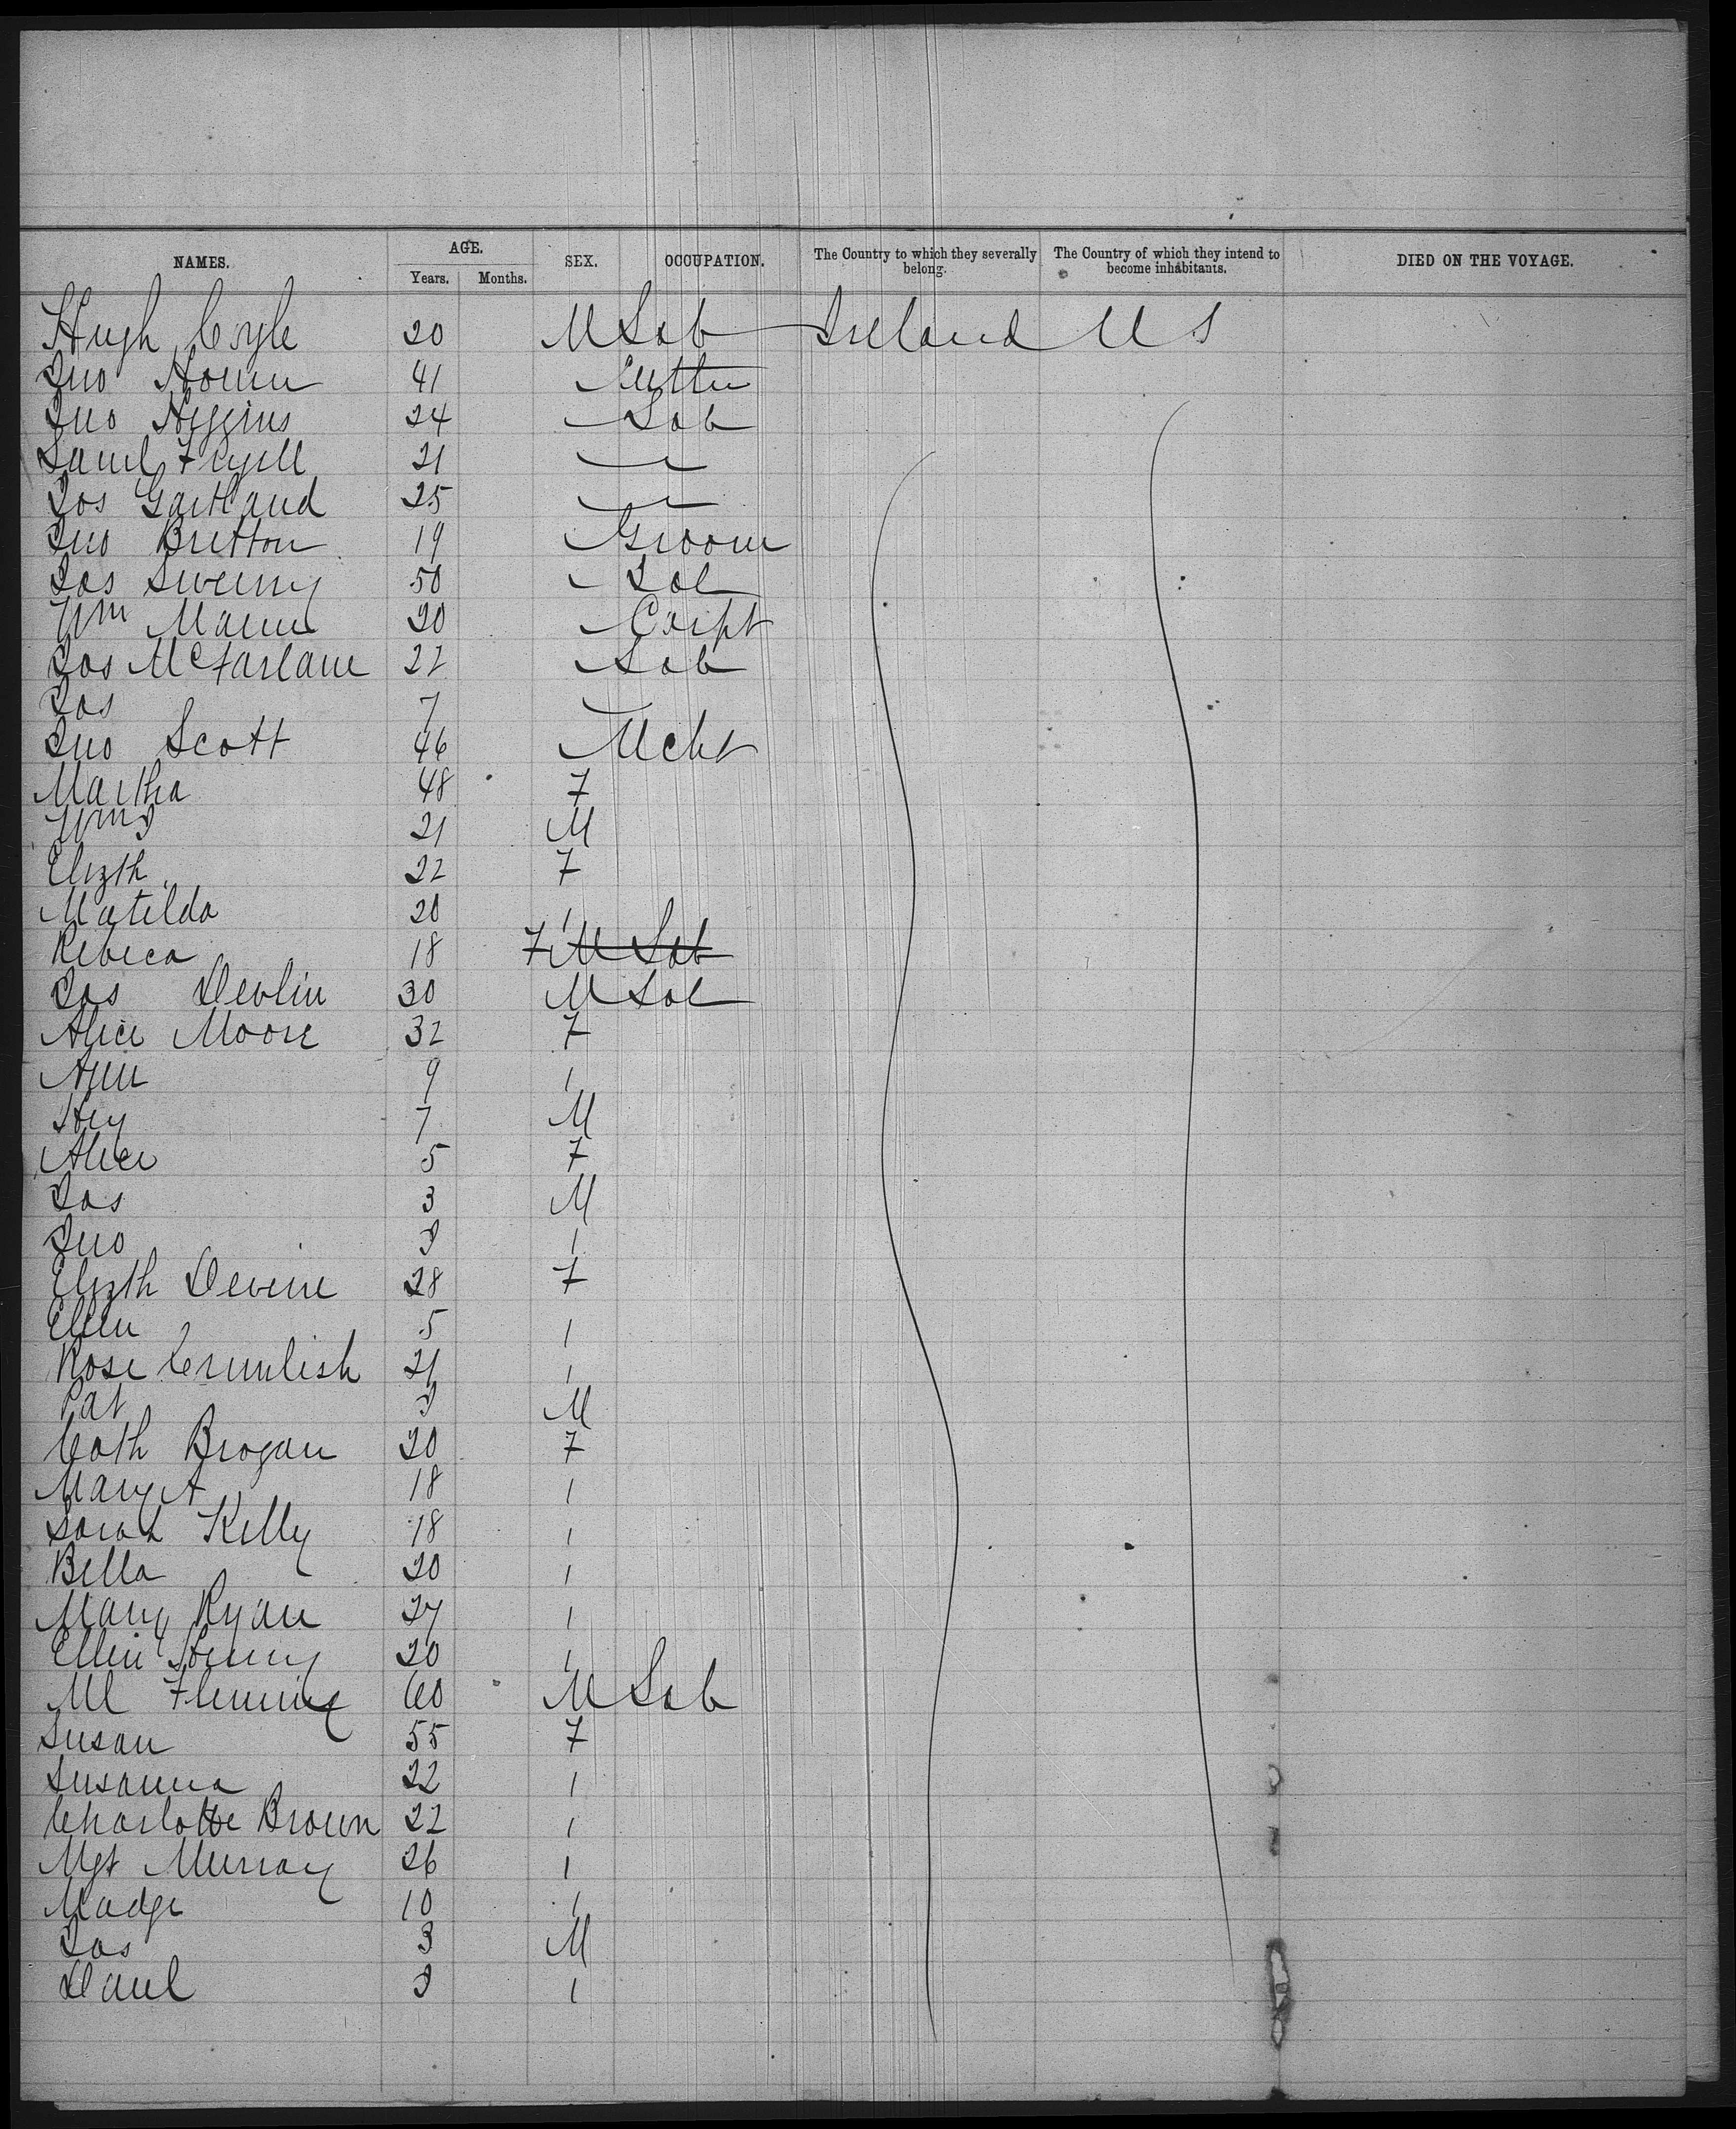 NAMES. AGE. SEX. OCCUPATION. The Country to which they severally belong. The Country of which they intend to become inhabitants. DIED ON THE VOYAGE.
Years. Months.
Hugh Coyle 20 M Lab Ireland U S
Jno 41
Jno Higgins 24 Lab
Saml 21
Jos Gartland 25
Jno Britton 19 Groom
Jas Sweeny 50 Lab
Wm Mann 20 Carpt
Jas McFarlane 22 Lab
Jas 7
Jno Scott 46 Mcht
Martha 48 F
Wm J 21 M
Elizth 22 F
Matilda 20 1
Rebeca 18 F M Lab
Jas Devlin 30 M Lab
Alice Moore 32 F
Ann 9 1
Hy 7 M
Alice 5 F
Jas 3 M
Jno 1
Elizth Devine 28 F
Ellen 5 1
Rose Crumlish 21 1
Pat M
Cath Brogan 20 F
Mary A 18 1
Sarah Kelly 18 1
Bella 20 1
Mary Ryan 1
Ellen 20 1
Ml Fleming 60 M Lab
Susan 55 F
Susanna 22 1
Charlotte Brown 22 1
Mgt Murray 26 1
Madge 10 1
Jas 3 M
Danl 1